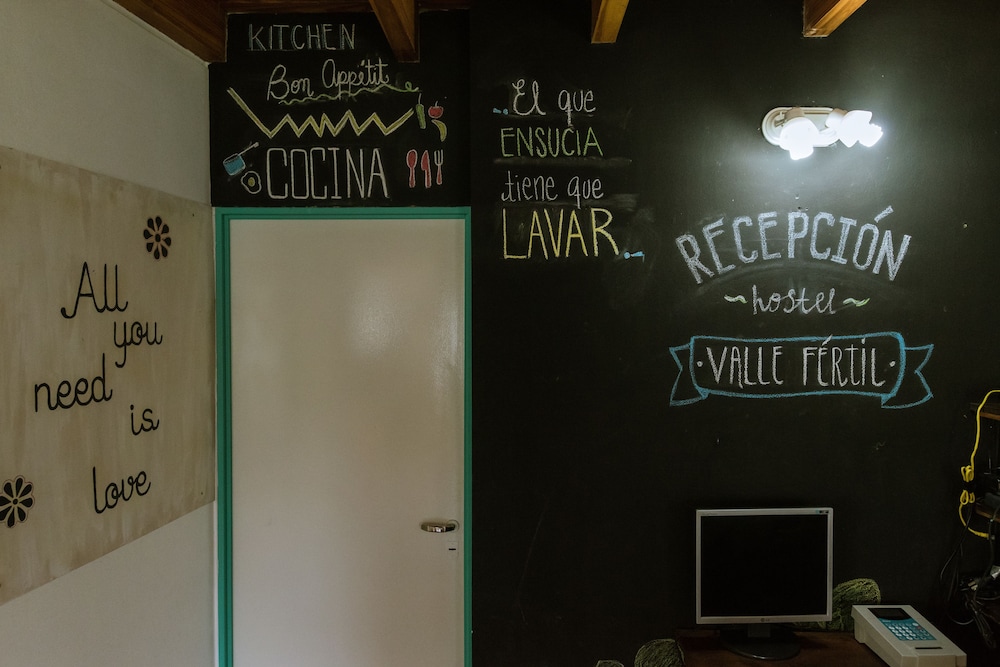 KITCHEN
Bon Appétit
COCINA
El que
ENSUCIA
tiene que
LAVAR
RECEPCIÓN
hostel
VALLE FÉRTIL
All
you
need
is
love